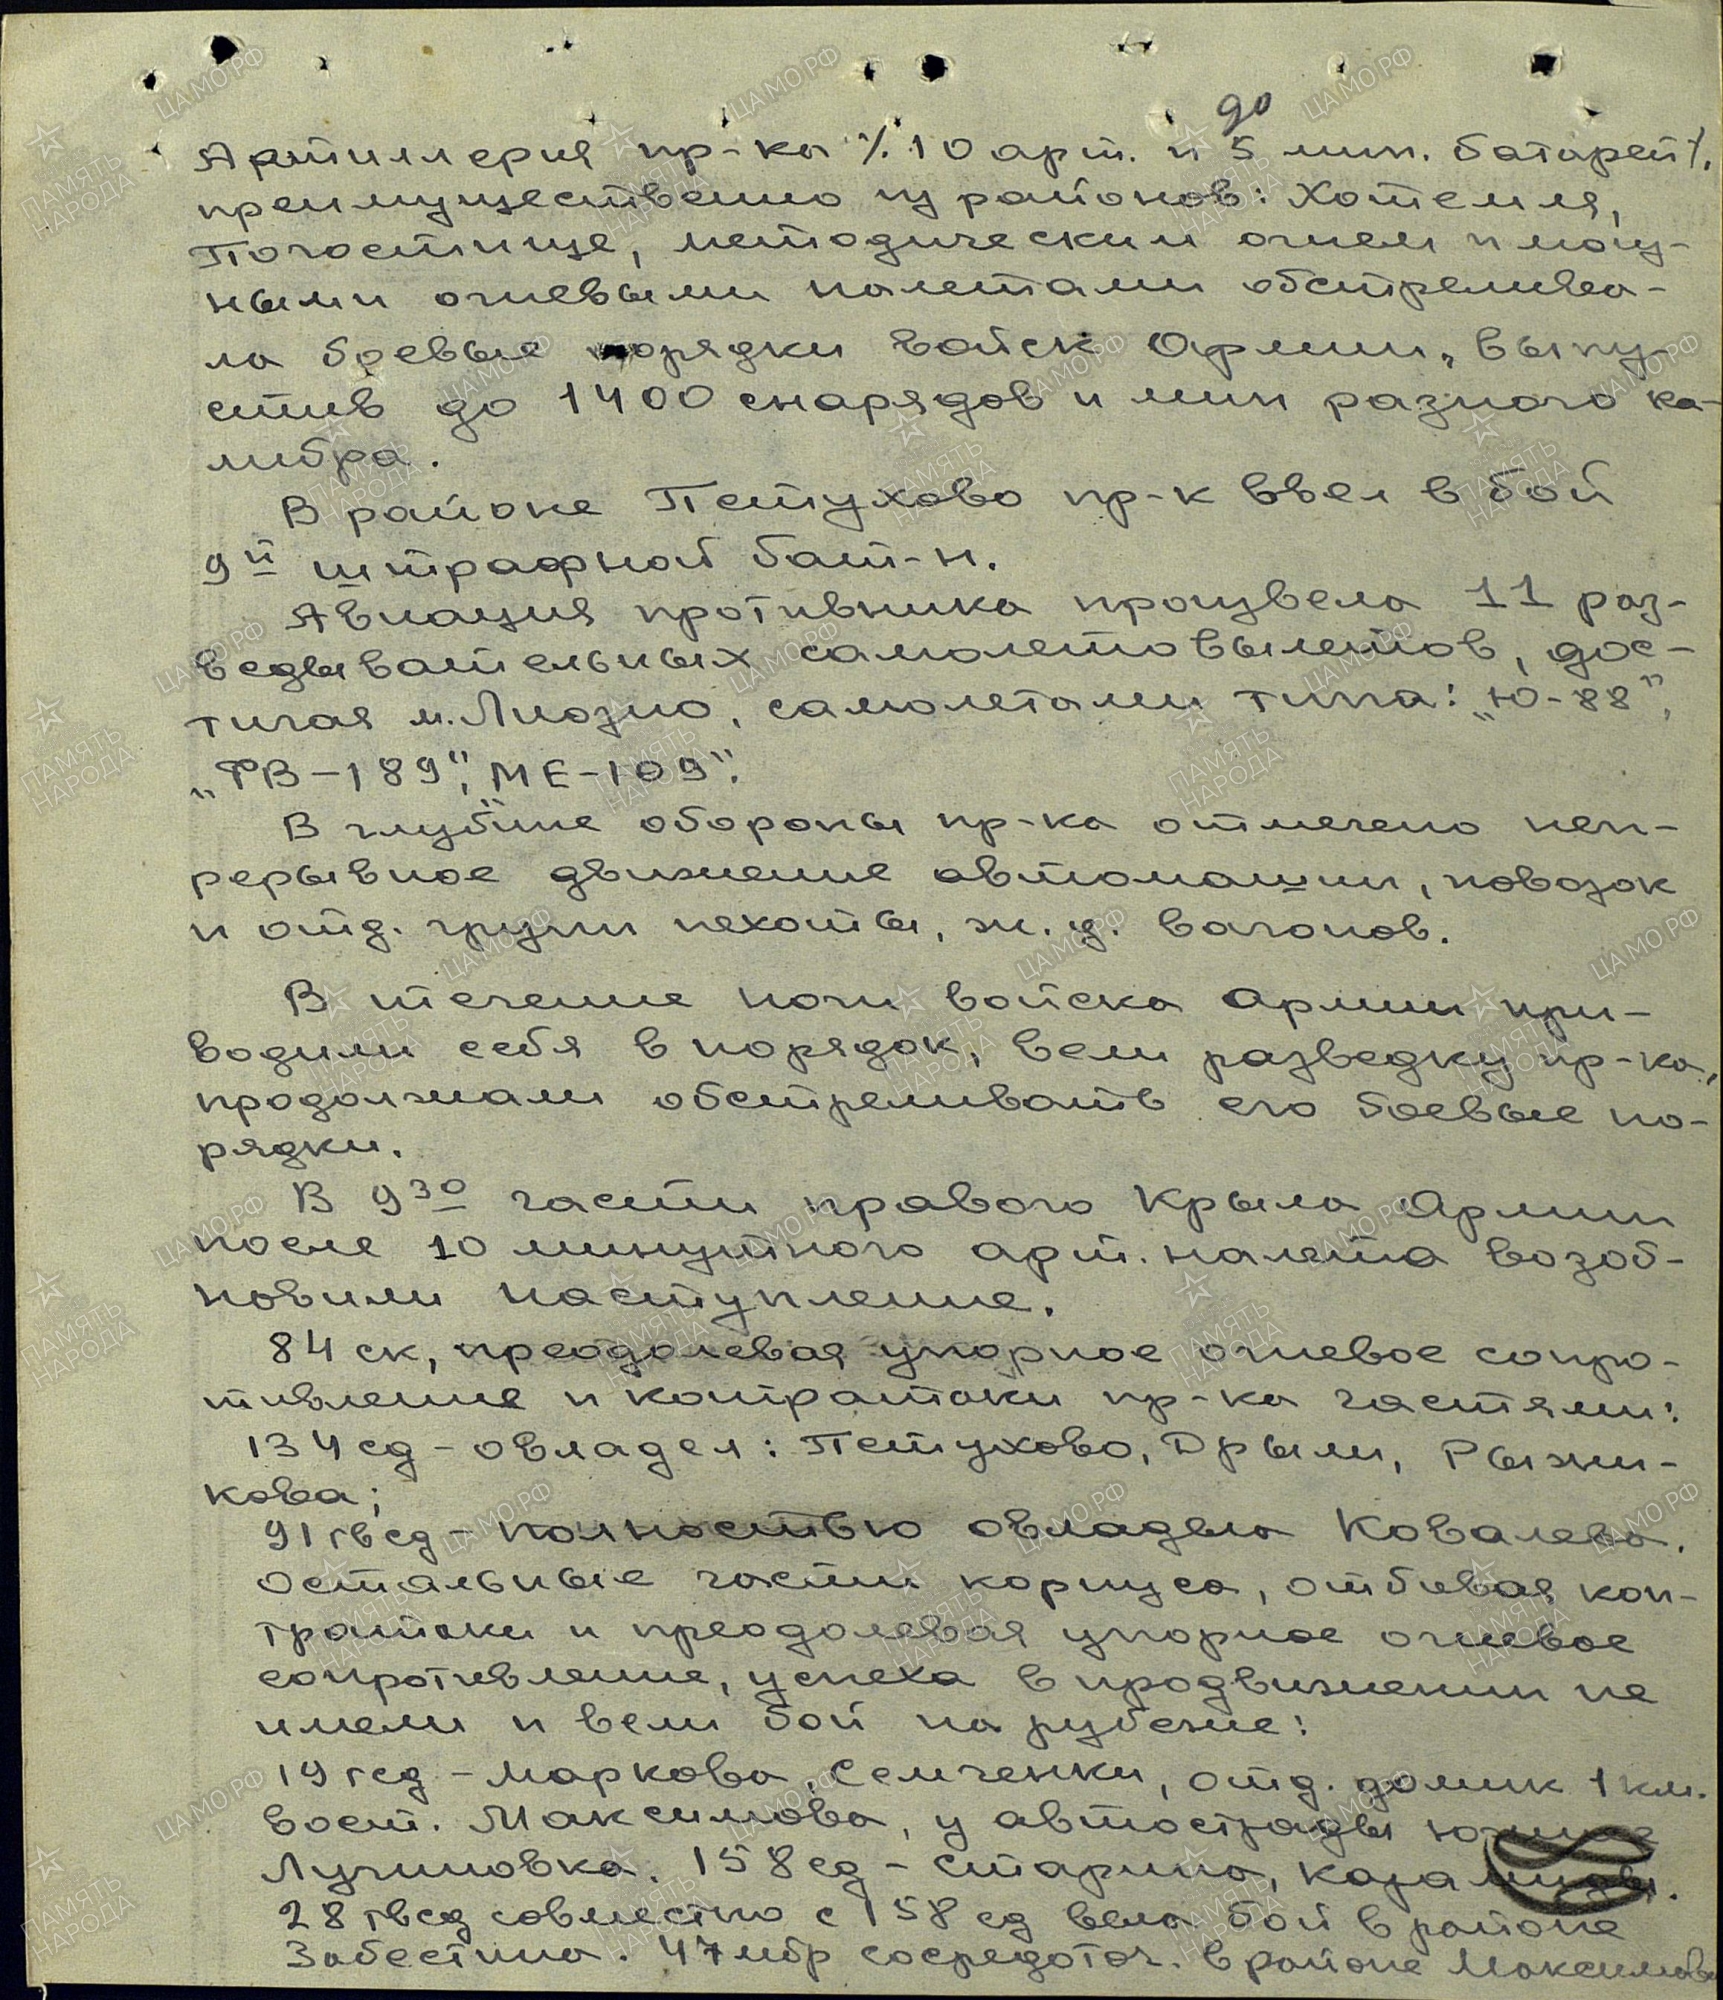 до
Артиллерия пр-ка /.10 арт. и 5 мин. батарей/.
преимущественно из районов: Хотемля,
Погостище, методическим огнем и мощ-
ными огневыми налетами обстрелива-
ла боевые порядки войск Армии, выпу-
стив до 1400 снарядов и мин разного ка-
либра.
В районе Петухово пр-к ввел в бой
9й штрафной бат-н.
Авиация противника произвела 11 раз-
ведывательных самолетовылетов, дос-
тигая м. Лиозно, самолетами типа: „Ю-88",
„ФВ-189", „МЕ-109".
В глубине обороны пр-ка отмечено неп-
рерывное движение автомашин, повозок
и отд. групп пехоты, ж.д. вагонов.
В течение ночи войска Армии при-
водили себя в порядок, вели разведку пр-ка,
продолжали обстреливать его боевые по-
рядки.
В 9 30 части правого крыла Армии
после 10 минутного арт. налета возоб-
новили наступление.
84 ск, преодолевая упорное огневое сопро-
тивление и контратаки пр-ка частями:
134 сд - овладел: Петухово, Дрыли, Рыжи-
кова;
91 гвсд - полностью овладела Ковалева.
Остальные части корпуса, отбивая кон-
тратаки и преодолевая упорное огневое
сопротивление, успеха в продвижении не
имели и вели бой на рубеже:
19 гсд - Маркова, Семченки, отд. домик 1 км.
вост. Максимова, у автострады южнее
Лучиновка. 158 сд - Старина,
28 гвсд совместно с 158 сд вела бой в районе
Забестина. 47 мбр сосредоточ. в районе Максимова